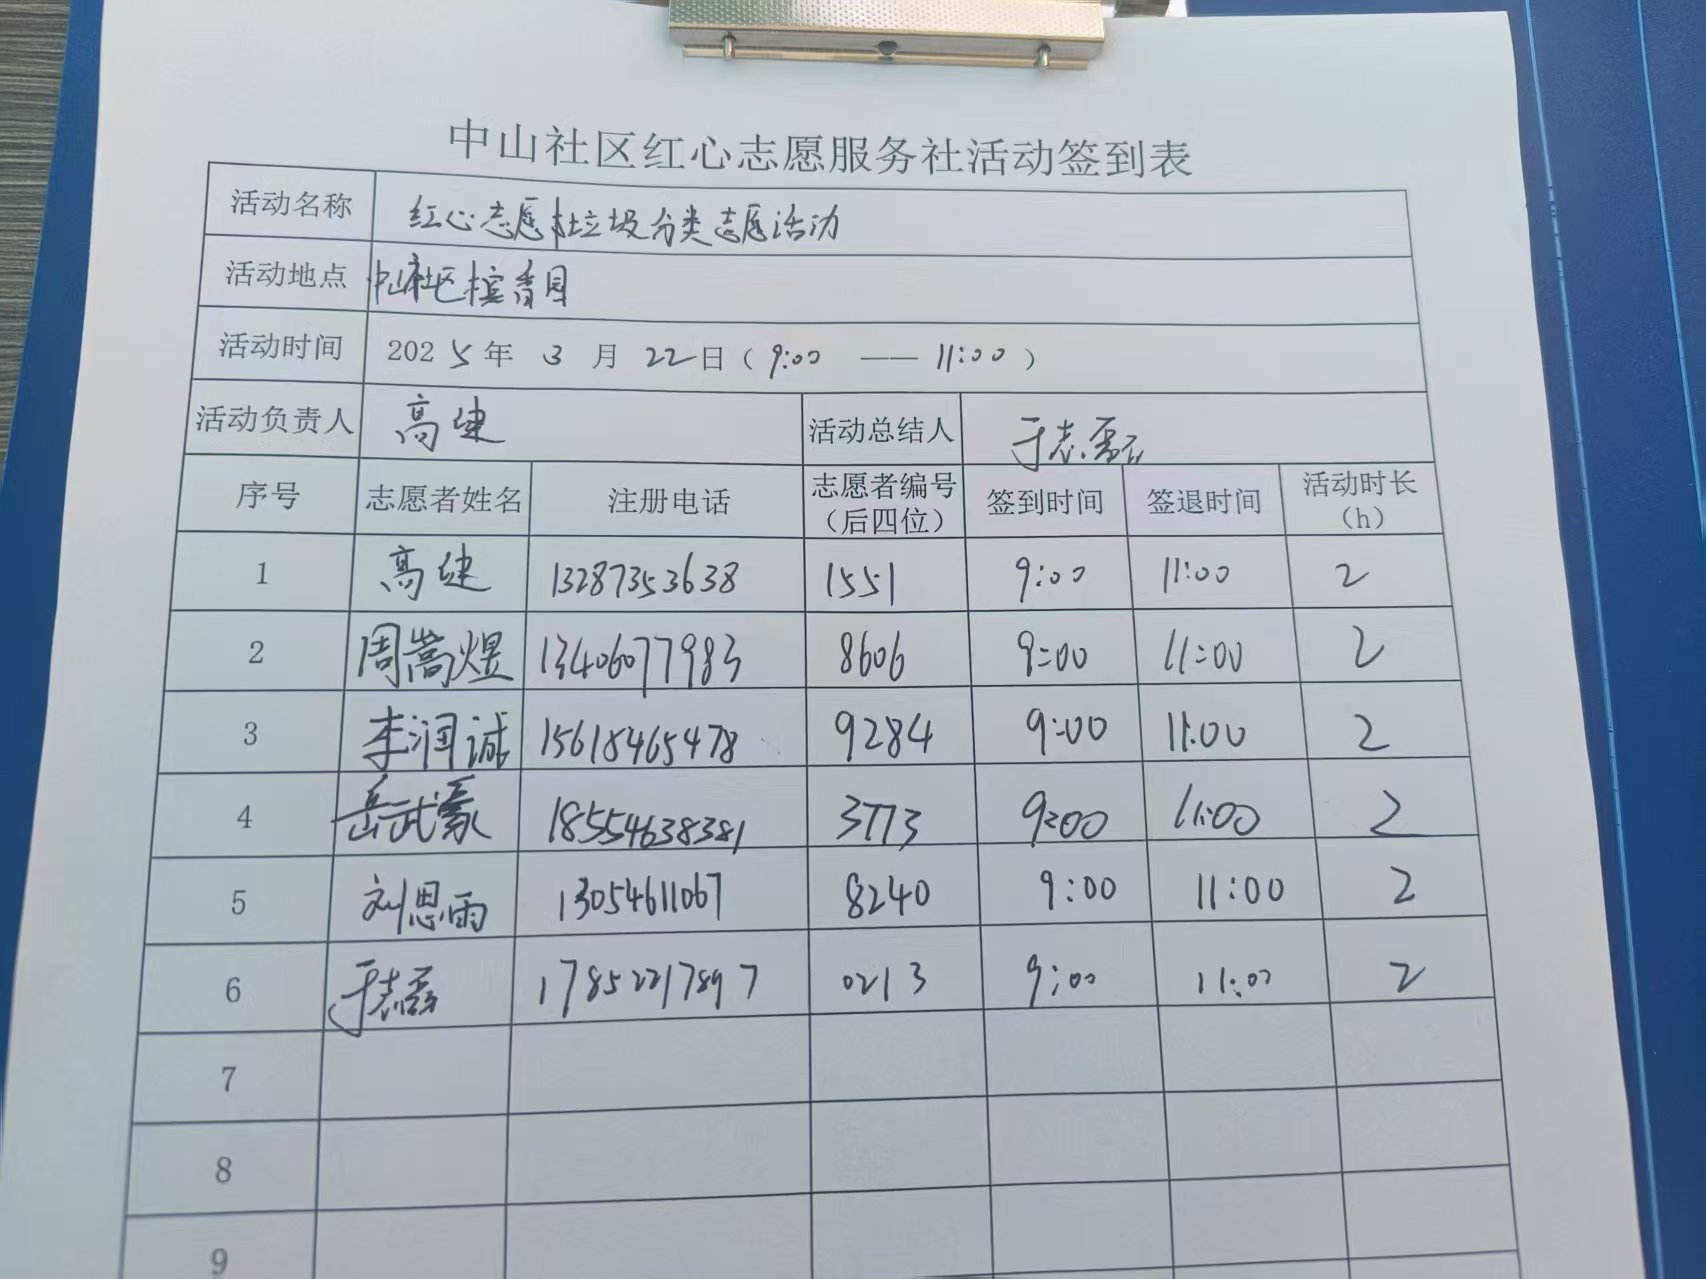 中山社区红心志愿服务社活动签到表
活动名称 红心志愿垃圾分类志愿活动
活动地点 中山社区槟香园
活动时间 2025年 3月 22日(9:00 —— 11:00)
活动负责人 高健 活动总结人 于志磊
序号 志愿者姓名 注册电话 志愿者编号(后四位) 签到时间 签退时间 活动时长(h)
1 高健 13287353638 1551 9:00 11:00 2
2 周嵩煜 13406077983 8606 9:00 11:00 2
3 李润诚 15618465478 9284 9:00 11:00 2
4 岳武豪 18554638381 3773 9:00 11:00 2
5 刘思雨 13054611067 8240 9:00 11:00 2
6 于志磊 17852217897 0213 9:00 11:00 2
7
8
9